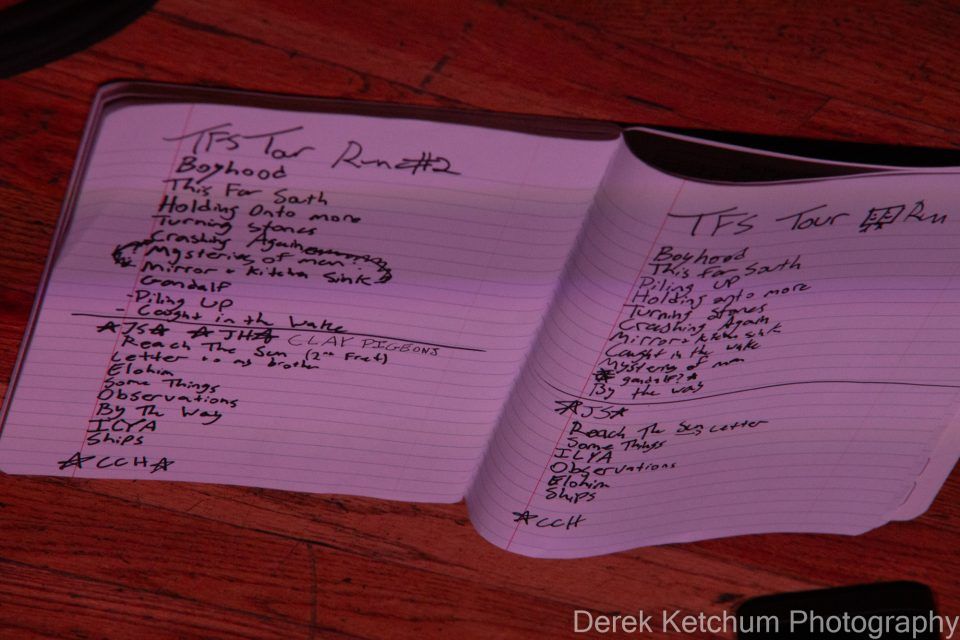 TFS Tour Run #2
Boyhood
This Far South
Holding Onto more
Turning Stones
Crashing Again
Mysteries of men
Mirror + Kitchen Sink
Gandalf
- Piling UP
- Caught in the Wake
☆JS☆ ☆JH☆ CLAY PIGEONS
Reach The Sun (2nd Fret)
Letter to my brother
Elohim
Some Things
Observations
By The Way
ILYA
Ships
☆CCH☆
TFS Tour Run
Boyhood
This Far South
Piling UP
Holding onto more
Turning Stones
Crashing Again
Mirror + kitchen sink
Caught in the wake
Mysteries of men
☆ gandalf? ☆
By the way
☆JS☆
Reach The Sun Letter
Some Things
ILYA
Observations
Elohim
Ships
☆CCH
Derek Ketchum Photography